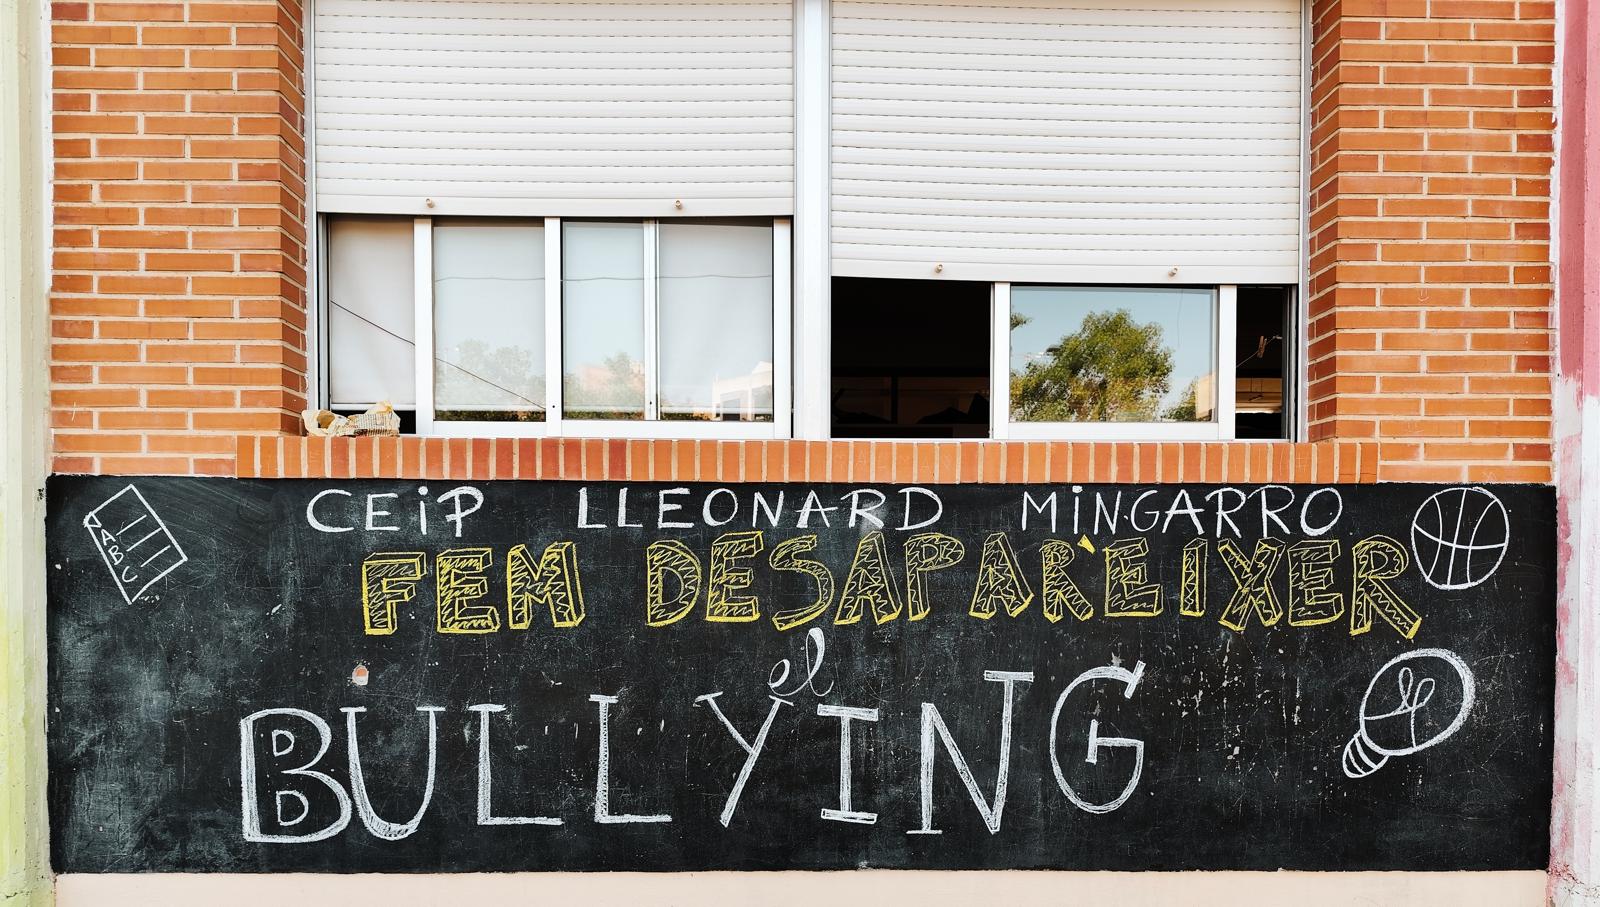 CEiP LLEONARD MiNGARRO
FEM DESAPARÈIXER
el
BULLYING
ABC